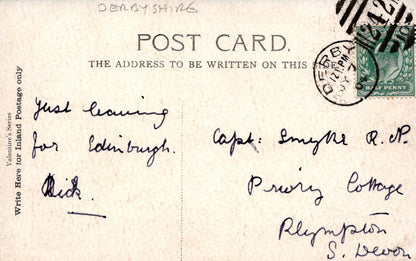 DERBYSHIRE
POST CARD.
THE ADDRESS TO BE WRITTEN ON THIS
Valentine's Series
Write Here for Inland Postage only
Just leaving
for Edinburgh.
Dick.
Capt. Smyke R.N.
Priory Cottage
Plympton
S. Devon
DERBY
242
HALF PENNY